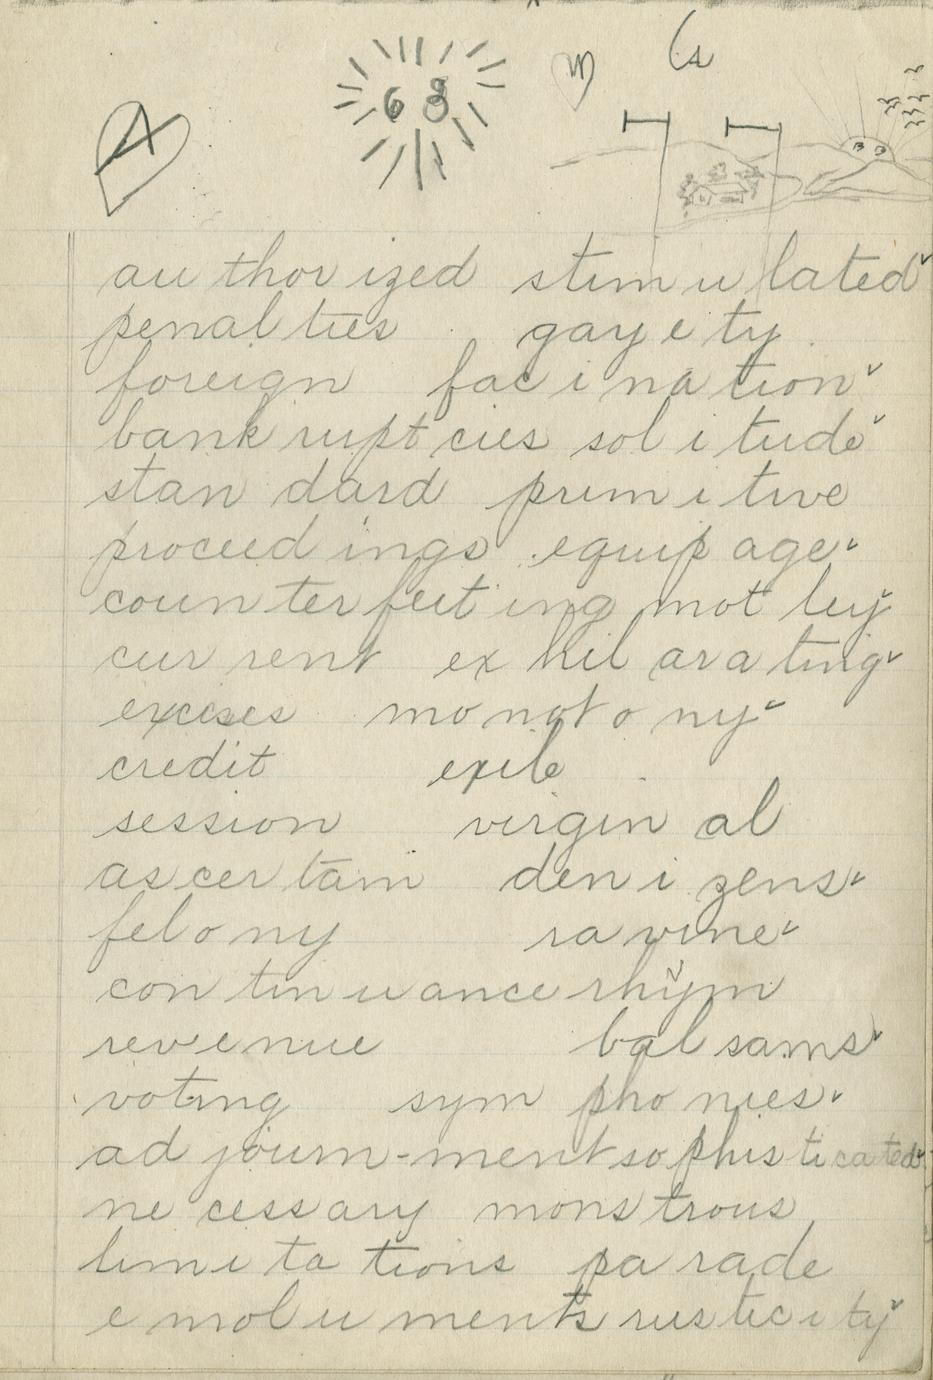 68
A
au thor ized stim u lated
penal ties gay e ty
foreign fac i na tion
bank rupt cies sol i tude
stan dard prim i tive
proceed ings equip age
coun ter feit ing mot ley
cur rent ex hil ara ting
excises mo not o ny
credit exile
session virgin al
as cer tain den i zens
fel o ny ra vine
con tin u ance rhym
rev e nue bal sams
voting sym pho nies
ad journ-ment so phis ti cated
ne cess ary mons trous
lim i ta tions pa rade
e mol u ments rus tic i ty